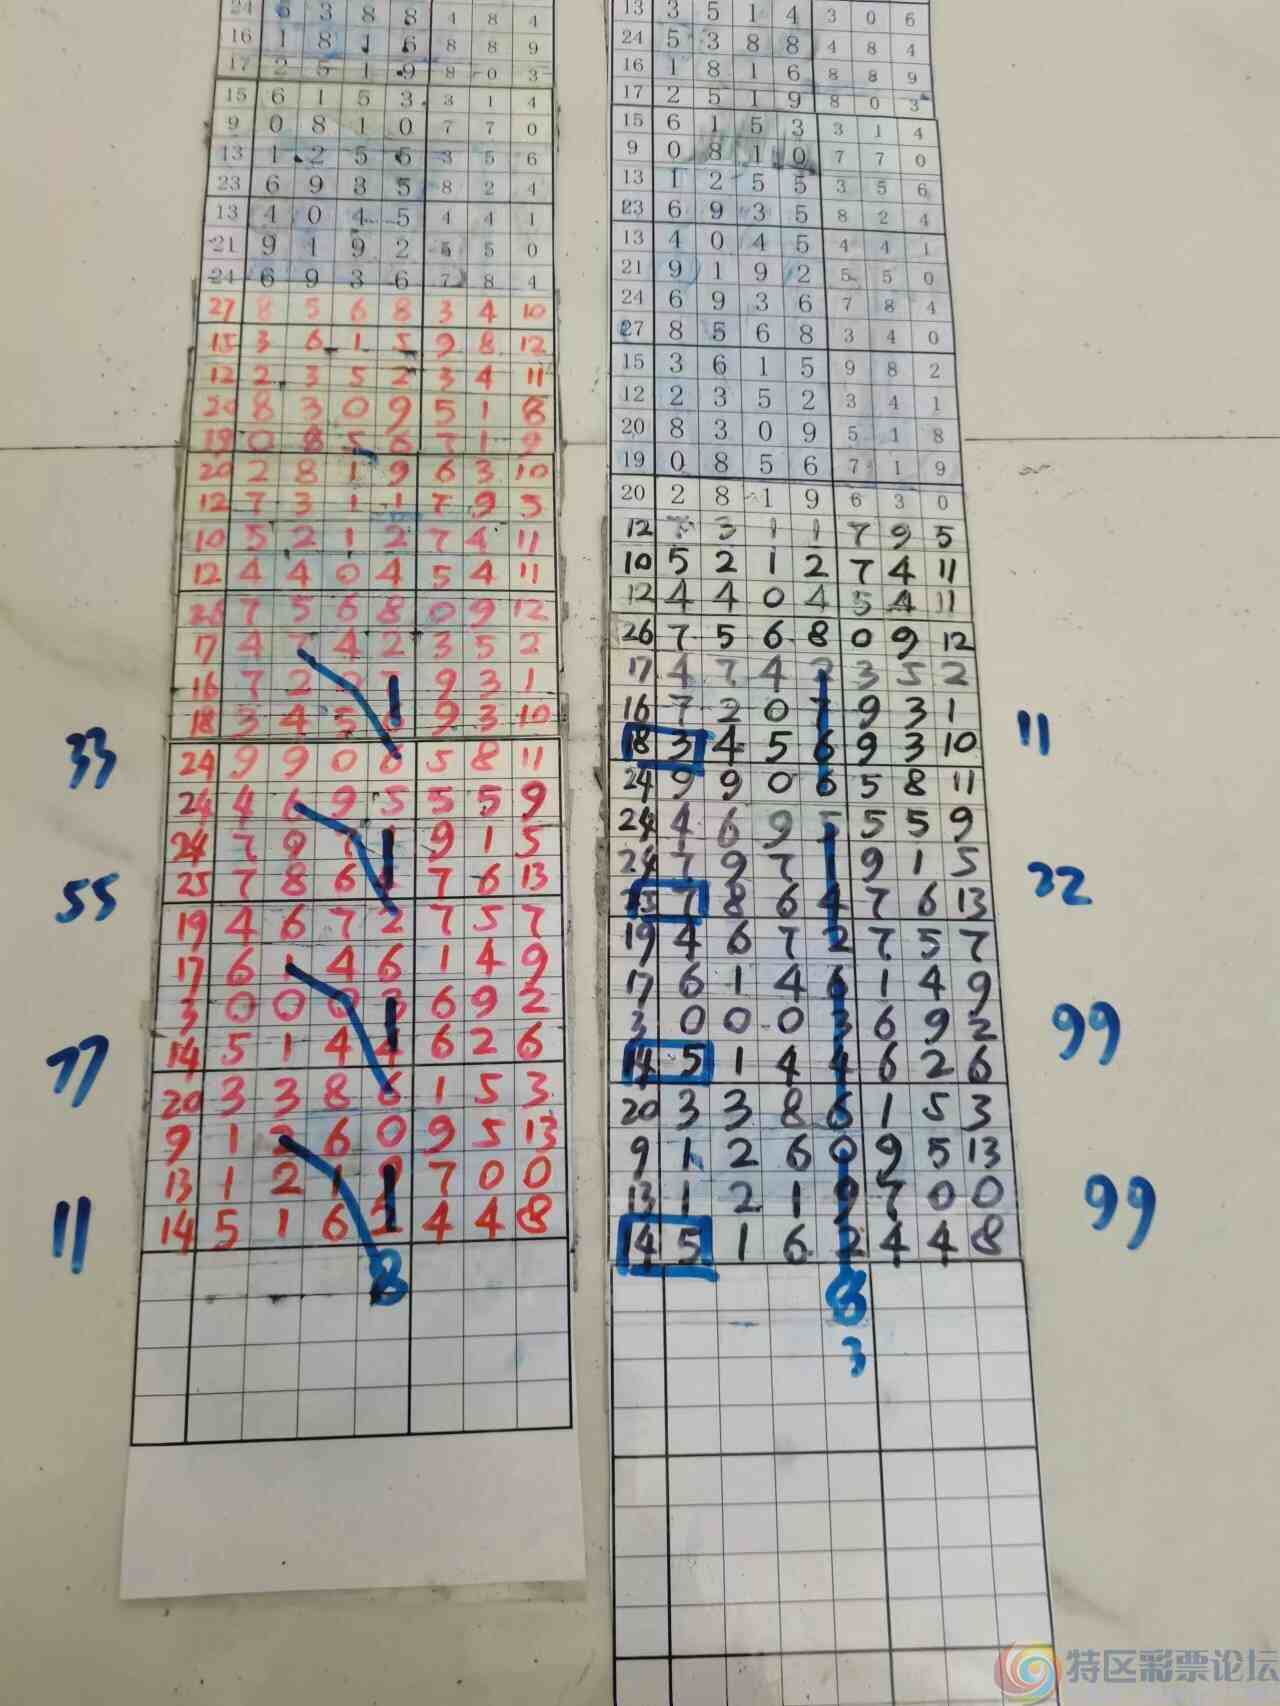 24 6 3 8 8 4 8 4
16 1 8 1 6 8 8 9
17 2 5 1 9 8 0 3
15 6 1 5 3 3 1 4
9 0 8 1 0 7 7 0
13 1 2 5 5 3 5 6
23 6 9 3 5 8 2 4
13 4 0 4 5 4 4 1
21 9 1 9 2 5 5 0
24 6 9 3 6 7 8 4
27 8 5 6 8 3 4 10
15 3 6 1 5 9 8 12
12 2 3 5 2 3 4 11
20 8 3 0 9 5 1 8
19 0 8 5 6 7 1 9
20 2 8 1 9 6 3 10
12 7 3 1 1 7 9 5
10 5 2 1 2 7 4 11
12 4 4 0 4 5 4 11
26 7 5 6 8 0 9 12
17 4 7 4 2 3 5 2
16 7 2 7 9 3 1
18 3 4 5 6 9 3 10
33
24 9 9 0 6 5 8 11
24 4 6 9 5 5 5 9
24 7 9 7 1 9 1 5
55
25 7 8 6 4 7 6 13
19 4 6 7 2 7 5 7
17 6 1 4 6 1 4 9
3 0 0 0 3 6 9 2
77
14 5 1 4 4 6 2 6
20 3 3 8 6 1 5 3
9 1 2 6 0 9 5 13
13 1 2 1 9 7 0 0
11
14 5 1 6 2 4 4 8
8
13 3 5 1 4 3 0 6
24 5 3 8 8 4 8 4
16 1 8 1 6 8 8 9
17 2 5 1 9 8 0 3
15 6 1 5 3 3 1 4
9 0 8 1 0 7 7 0
13 1 2 5 5 3 5 6
23 6 9 3 5 8 2 4
13 4 0 4 5 4 4 1
21 9 1 9 2 5 5 0
24 6 9 3 6 7 8 4
27 8 5 6 8 3 4 0
15 3 6 1 5 9 8 2
12 2 3 5 2 3 4 1
20 8 3 0 9 5 1 8
19 0 8 5 6 7 1 9
20 2 8 1 9 6 3 0
12 7 3 1 1 7 9 5
10 5 2 1 2 7 4 11
12 4 4 0 4 5 4 11
26 7 5 6 8 0 9 12
17 4 7 4 2 3 5 2
16 7 2 0 7 9 3 1
11
18 3 4 5 6 9 3 10
24 9 9 0 6 5 8 11
24 4 6 9 5 5 5 9
24 7 9 7 1 9 1 5
22
25 7 8 6 4 7 6 13
19 4 6 7 2 7 5 7
17 6 1 4 6 1 4 9
3 0 0 0 3 6 9 2
99
14 5 1 4 4 6 2 6
20 3 3 8 6 1 5 3
9 1 2 6 0 9 5 13
13 1 2 1 9 7 0 0
99
14 5 1 6 2 4 4 8
8
3
特区彩票论坛